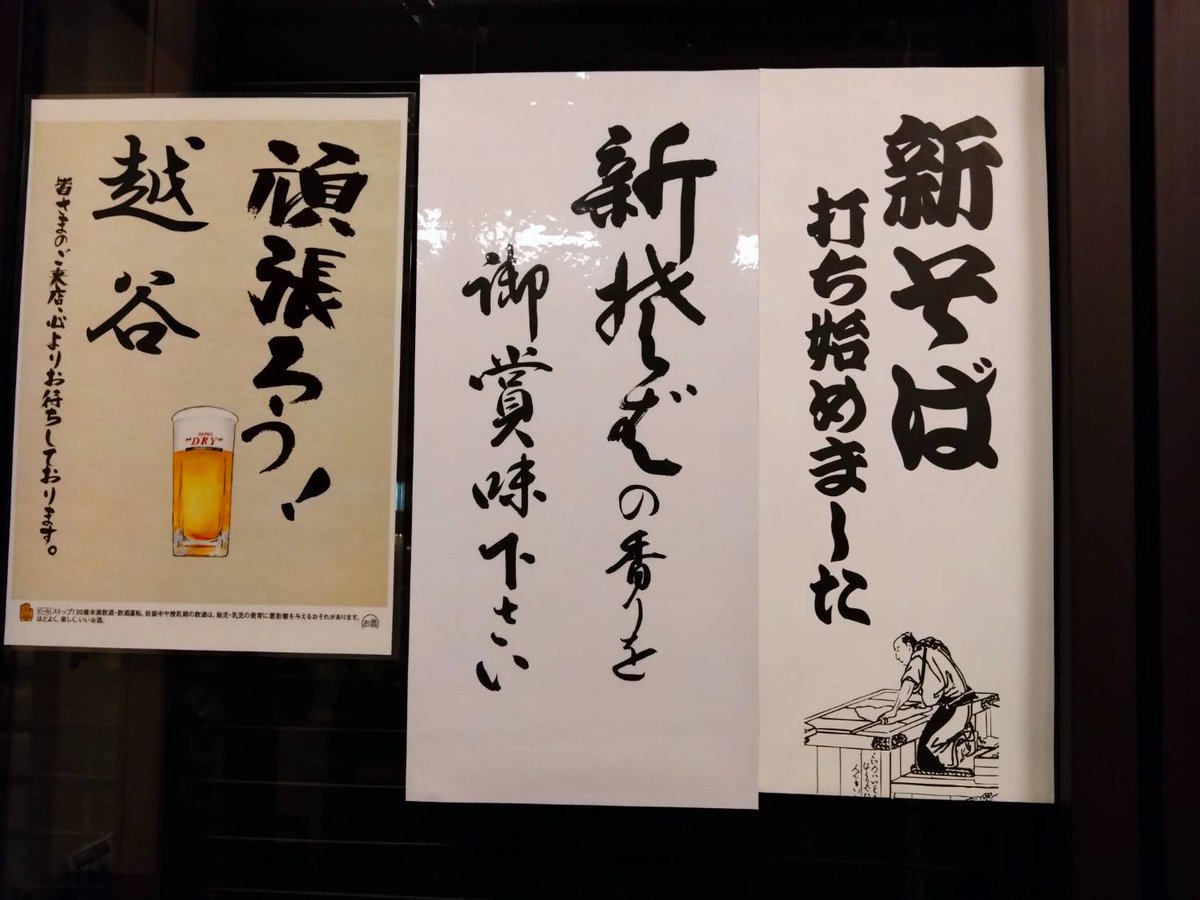 新そば
打ち始めました
新そばの香りを
御賞味下さい
頑張ろう!
越谷
皆さまのご来店、心よりお待ちしております。
"DRY"
ビール ストップ!20歳未満飲酒・飲酒運転。妊娠中や授乳期の飲酒は、胎児・乳児の発育に悪影響を与えるおそれがあります。
ほどよく、楽しく、いいお酒。
お酒